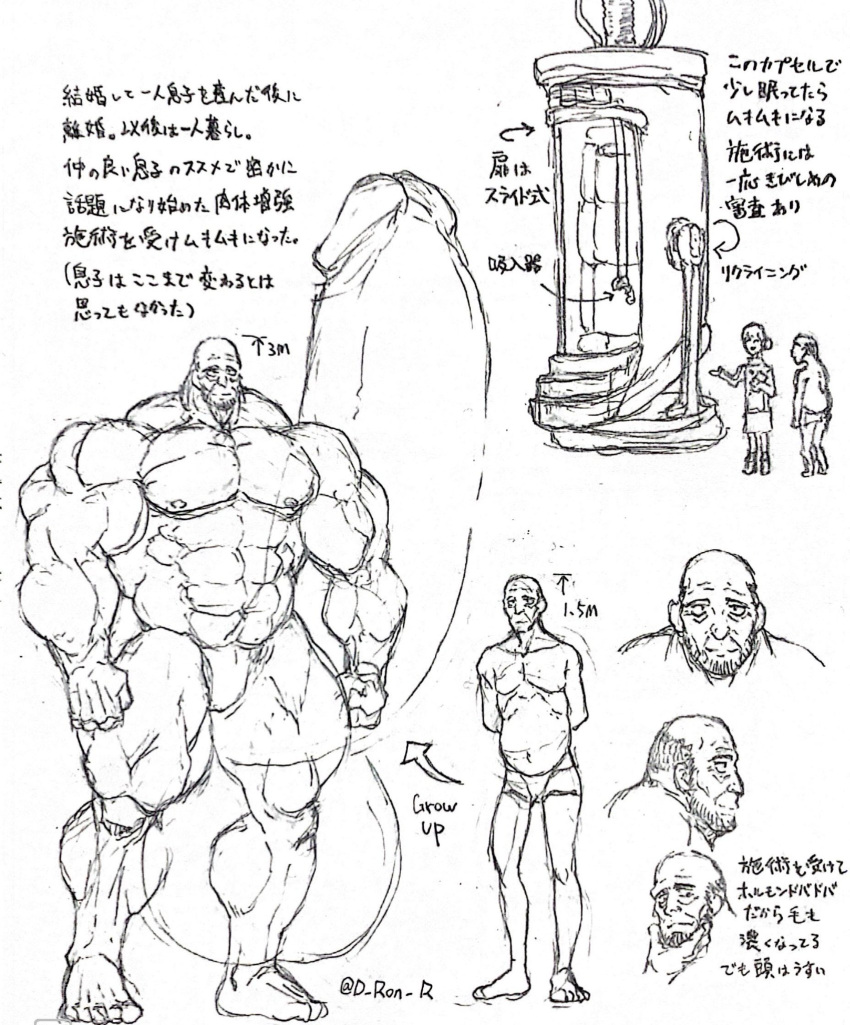 結婚して一人息子を産んだ後に
離婚。以後は一人暮らし。
仲の良い息子のススメで密かに
話題になり始めた肉体増強
施術を受けムキムキになった。
(息子はここまで変わるとは
思ってもなかった)
↑3M
このカプセルで
少し眠ってたら
ムキムキになる
施術には
一応きびしめの
審査あり
扉は
スライド式
吸入器
リクライニング
↑
1.5M
Grow
up
施術を受けて
ホルモンドバドバ
だから毛も
濃くなってる
でも頭はうすい
@D_Ron_R